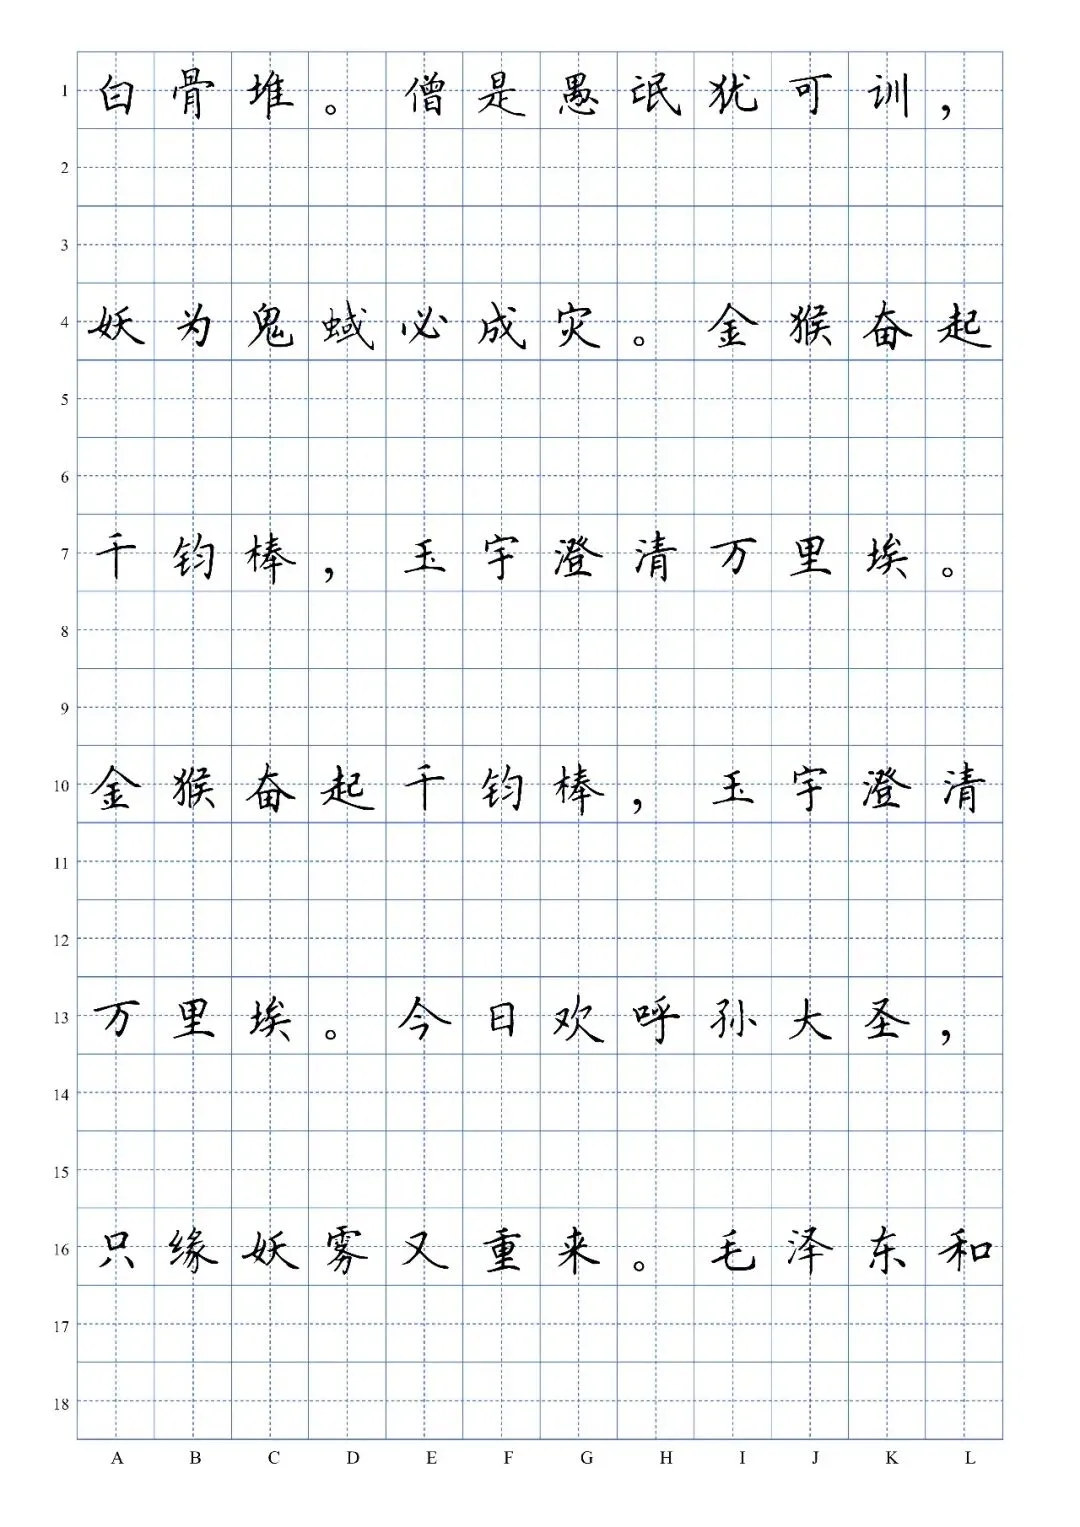 1 白骨堆。僧是愚氓犹可训，
2
3
4 妖为鬼蜮必成灾。金猴奋起
5
6
7 千钧棒，玉宇澄清万里埃。
8
9
10 金猴奋起千钧棒，玉宇澄清
11
12
13 万里埃。今日欢呼孙大圣，
14
15
16 只缘妖雾又重来。毛泽东和
17
18
A B C D E F G H I J K L